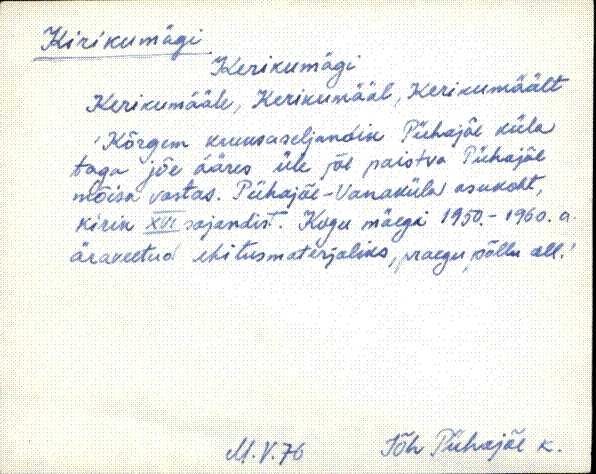 Kirikumägi
Kerikumägi
Kerikumääle, Kerikumääl, Kerikumäält
'Kõrgem kruusaseljandik Pühajõe küla
taga jõe ääres üle jõe paistva Pühajõe
mõisa vastas. Pühajõe-Vanaküla asukoht,
kirik XVI sajandist. Kogu mäegi 1950.-1960. a.
äraveetud ehitusmaterjaliks, praegu põllu all.'
M.V.76 Jõh Pühajõe k.